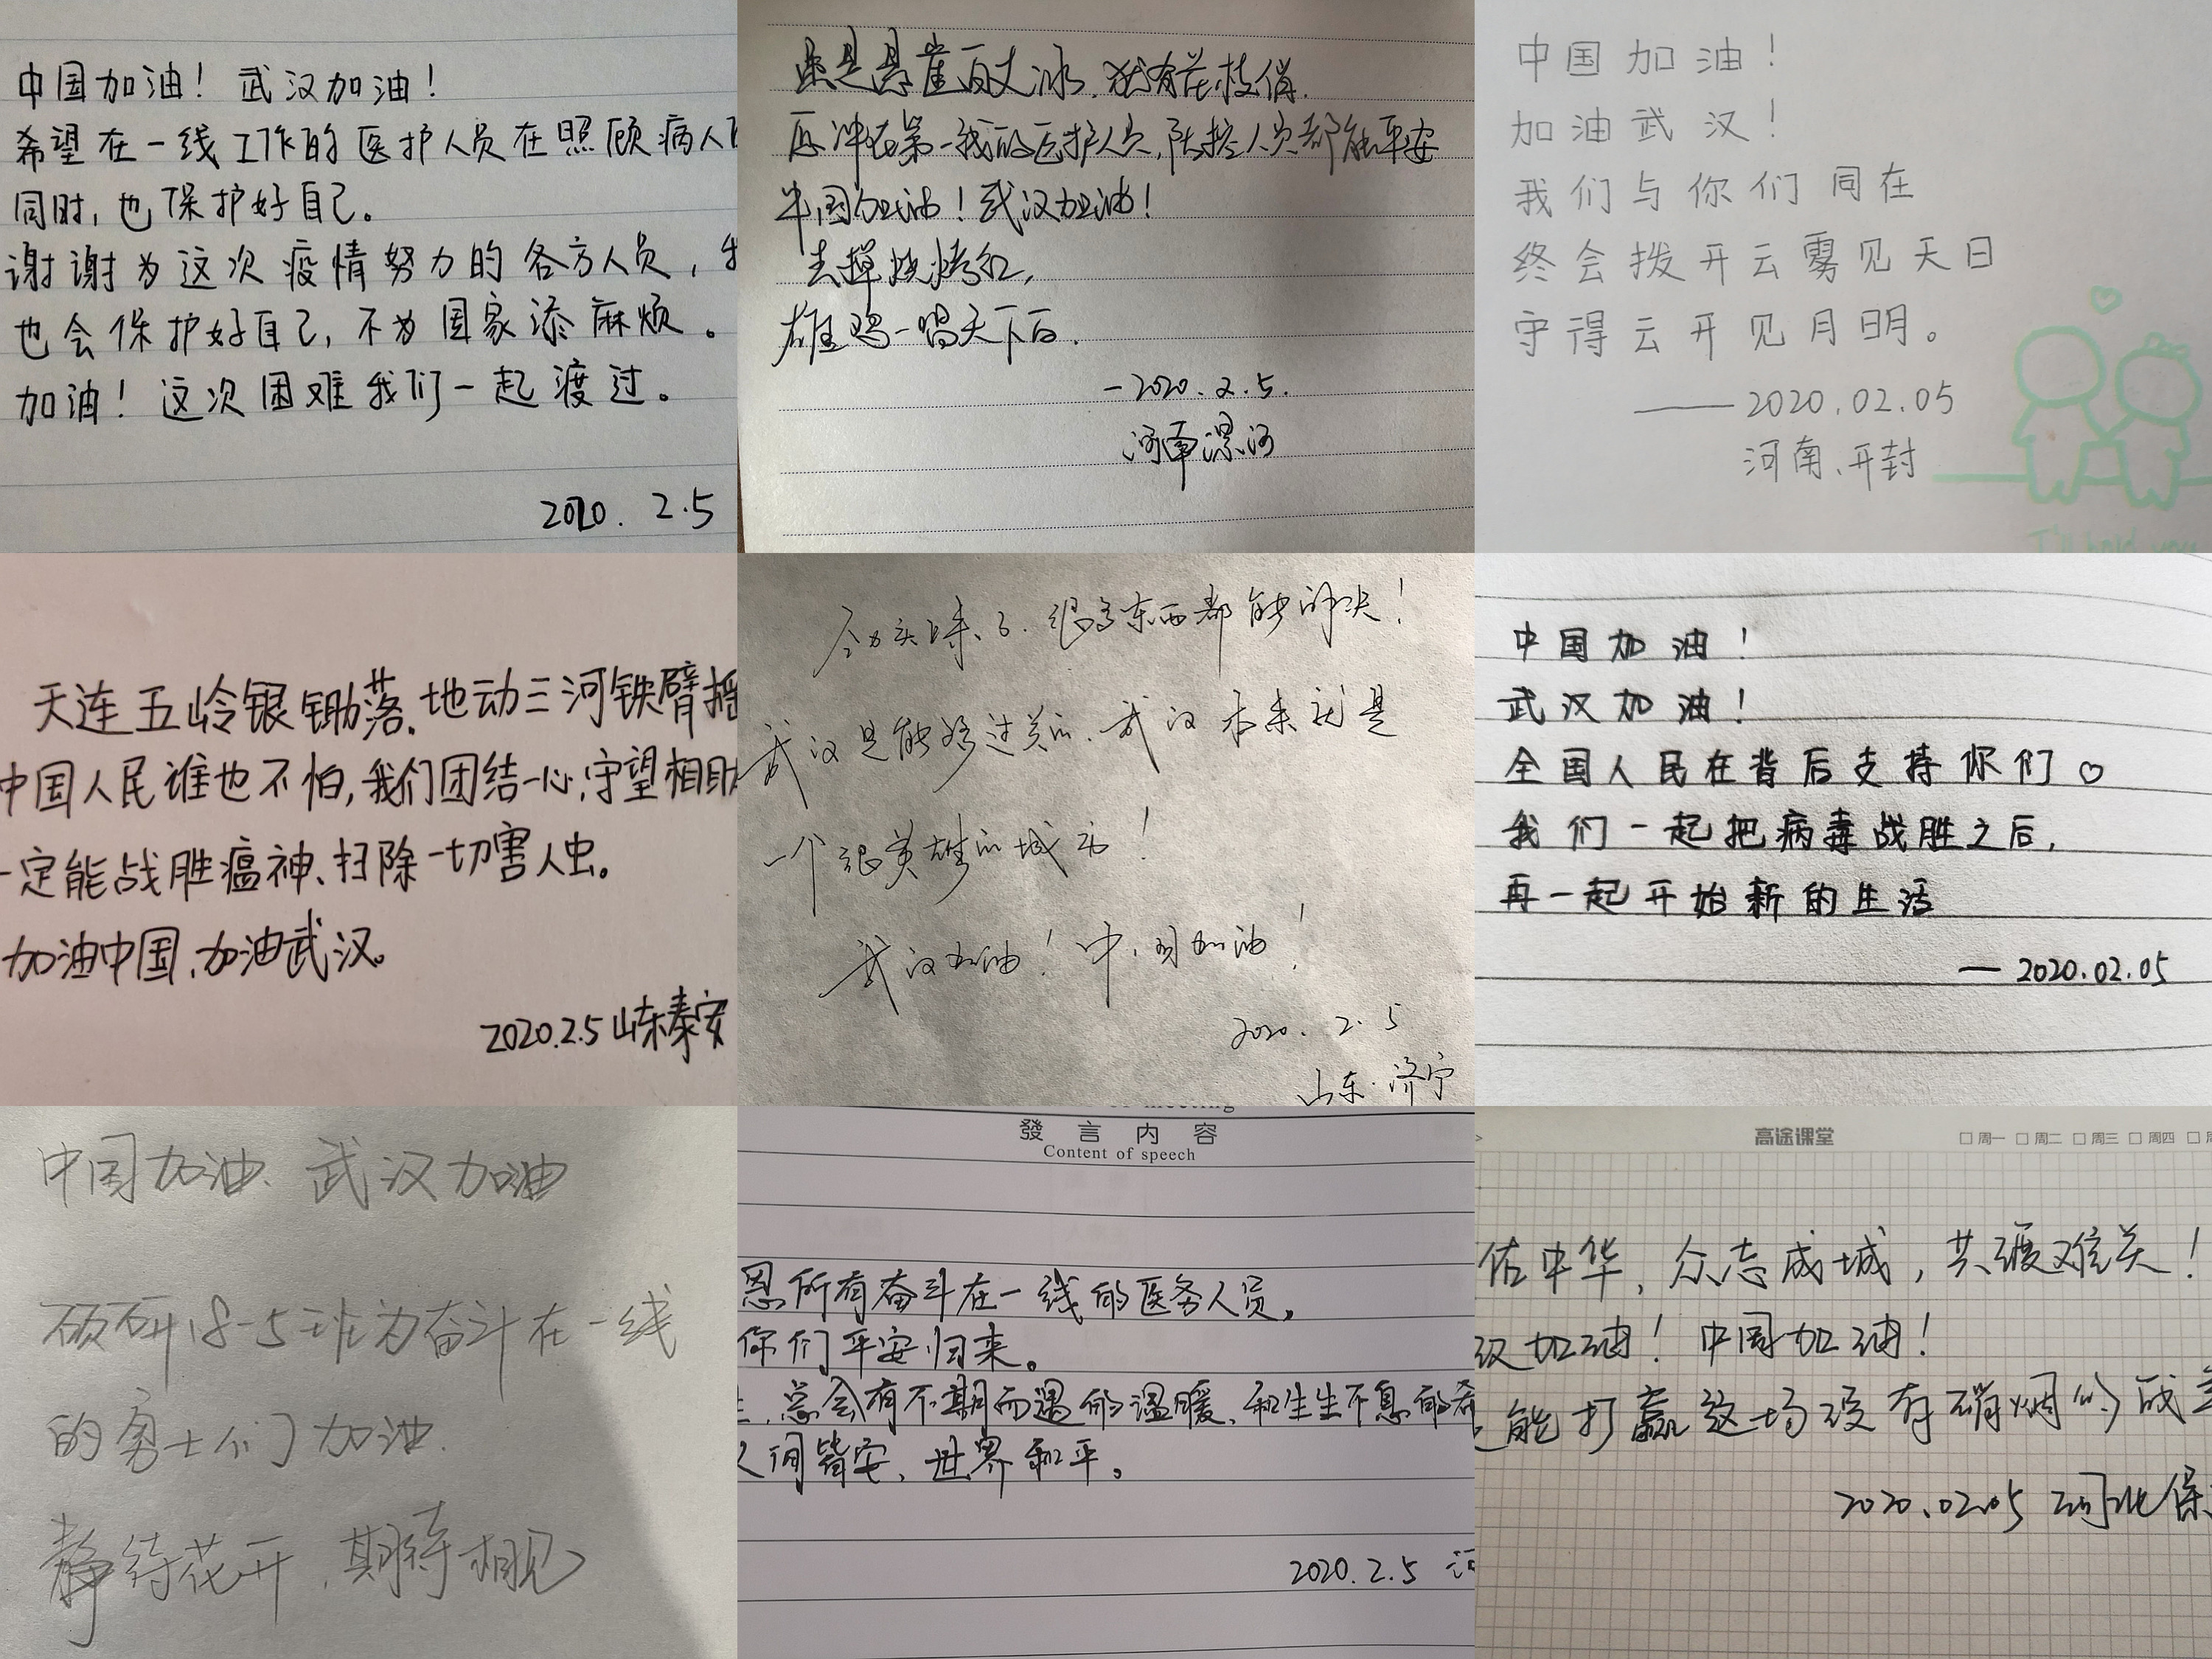 中国加油！武汉加油！
希望在一线工作的医护人员在照顾病人
同时，也保护好自己。
谢谢为这次疫情努力的各方人员，
也会保护好自己，不为国家添麻烦。
加油！这次困难我们一起渡过。
2020. 2.5
已是悬崖百丈冰，犹有花枝俏.
愿冲在第一线的医护人员，防控人员都能平安
中国加油！武汉加油！
去掉烧烤红，
雄鸡一唱天下白.
-2020.2.5.
河南漯河
中国加油！
加油武汉！
我们与你们同在
终会拨开云雾见天日
守得云开见月明。
——2020.02.05
河南、开封
I'll hold you
天连五岭银锄落，地动三河铁臂摇
中国人民谁也不怕，我们团结一心，守望相助
一定能战胜瘟神、扫除一切害人虫。
加油中国，加油武汉。
2020.2.5 山东泰安
很多东西都能解决！
武汉是能够过关的、武汉本来就是
一个很英雄的城市！
武汉加油！中国加油！
2020. 2. 5
山东·济宁
中国加油！
武汉加油！
全国人民在背后支持你们♡
我们一起把病毒战胜之后，
再一起开始新的生活
— 2020.02.05
中国加油、武汉加油
硕研18-5班为奋斗在一线
的勇士们加油.
静待花开，期待相见
發言内容
Content of speech
恩所有奋斗在一线的医务人员，
你们平安归来。
总会有不期而遇的温暖、和生生不息的希
人间皆安，世界和平。
2020.2.5
高途课堂
周一 周二 周三 周四
佑中华，众志成城，共渡难关！
汉加油！中国加油！
能打赢这场没有硝烟的战
2020.02.05 河北保